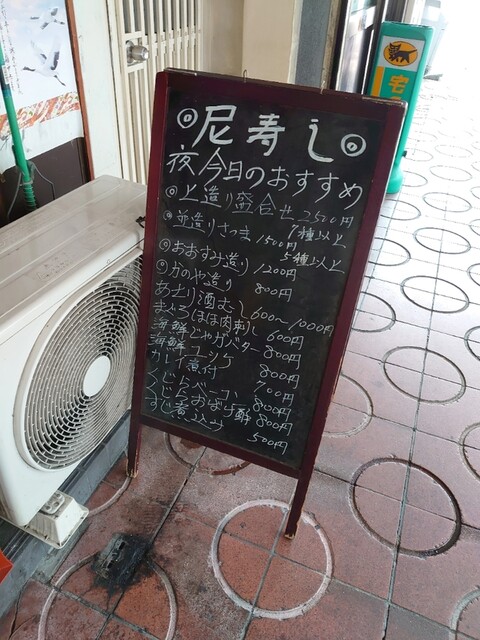 ◎尼寿し◎
夜今日のおすすめ
◎上造り盛合せ 2500円
7種以上
◎並造りさつま 1500円
5種以上
◎おおすみ造り 1200円
◎かのや造り 800円
あさり酒むし 600〜1000円
まぐろほほ肉刺し 600円
海鮮じゃがバター 800円
海鮮コロッケ 800円
カレイ煮付 700円
くじらベーコン 800円
くじらおばけ酢 800円
煮込み 500円
宅